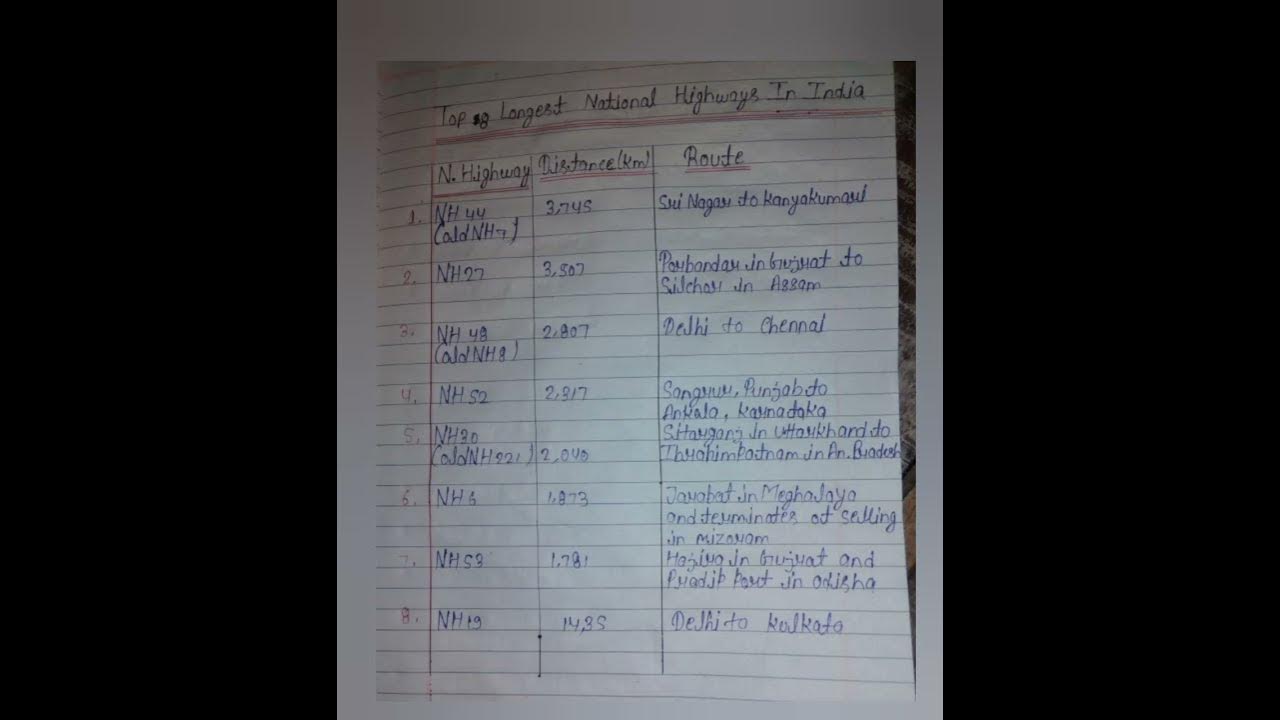 Top 8 Longest National Highways In India
N. Highway Distance(km) Route
1. NH 44 3,745 Sri Nagar to Kanyakumari
(old NH7)
2. NH27 3,507 Porbandar in Gujrat to
Silchar in Assam
3. NH 48 2,807 Delhi to Chennai
(old NH8)
4. NH 52 2,317 Sangrur, Punjab to
Ankola, Karnataka
5. NH30 Sitarganj in Uttarkhand to
(old NH221) 2,040 Ibrahimpatnam in An. Pradesh
6. NH6 1,873 Jorabat in Meghalaya
and terminates at selling
in mizoram
7. NH53 1,781 Hazira in Gujrat and
Pradip Port in odisha
8. NH19 1435 Delhi to Kolkata